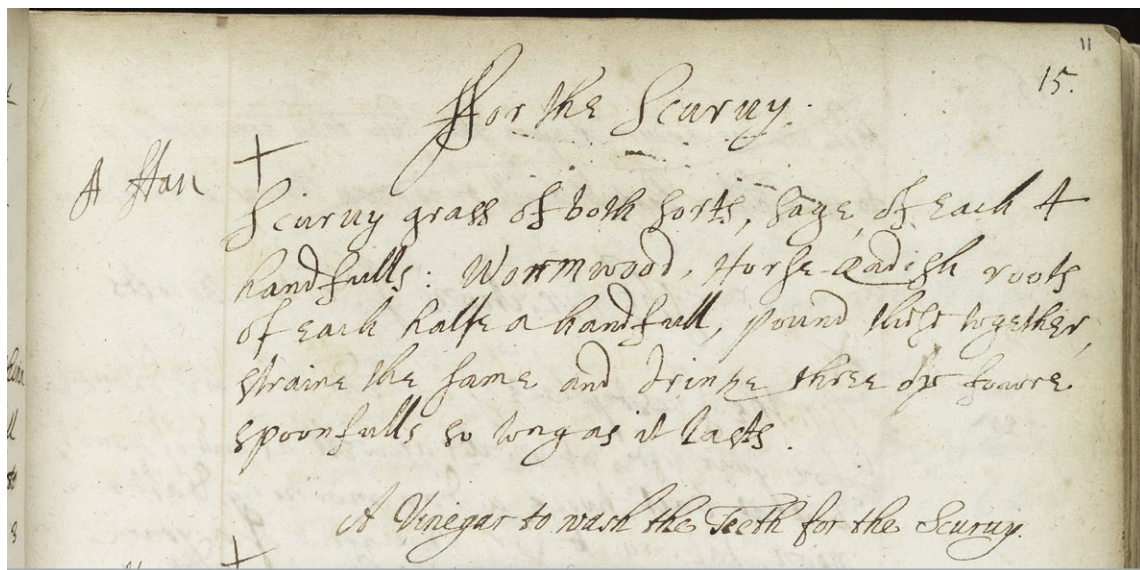 11
15.
For the Scuruy.
A Stan
Scuruy grass of both sorts, sage, of each 4
handfulls: Wormwood, Horse-Radish roots
of each halfe a handfull, pound these together,
straine the same and drinke three or fowre
spoonfulls so long as it lasts.
A Vinegar to wash the Teeth for the Scuruy.